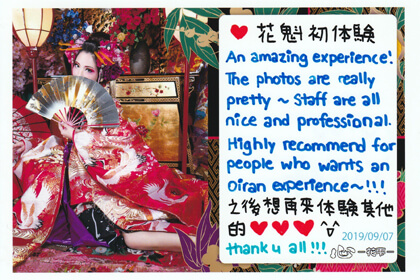 ♥ 花魁初体驗
An amazing experience!
The photos are really
pretty ~ Staff are all
nice and professional.
Highly recommend for
people who wants an
Oiran experience~!!!
之後想再來体驗其他
的♥♥♥♥ ^^
2019/09/07
thank u all !!!